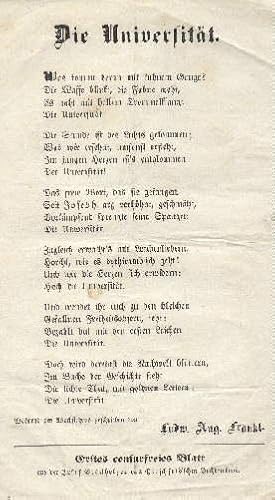 Die Universität.
Was kommt heran mit kühnem Gange?
Die Waffe blinkt, die Fahne weht,
Es naht mit hellem Trommelklange
Die Universität.
Die Stunde ist des Lichts gekommen;
Was wir ersehnt, umsonst erfleht,
Im jungen Herzen ist's entglommen
Der Universität.
Das freie Wort, das sie gefangen,
Seit Joseph arg verhöhnt, geschmäht,
Vorkämpfend sprengte seine Spangen
Die Universität.
Zugleich erwacht's mit Lerchenliedern,
Horcht, wie es dythirambisch geht!
Und wie die Herzen sich erwiedern:
Hoch die Universität.
Und wendet ihr euch zu den bleichen
Gefallnen Freiheitsopfern, seht:
Bezahlt hat mit den ersten Leichen
Die Universität.
Doch wird dereinst die Nachwelt blättern,
Im Buche der Geschichte steht
Die lichte That, mit goldnen Lettern:
Die Universität.
geschrieben von
Ludw. Aug. Frankl.
Erstes censurfreies Blatt
aus der Josef